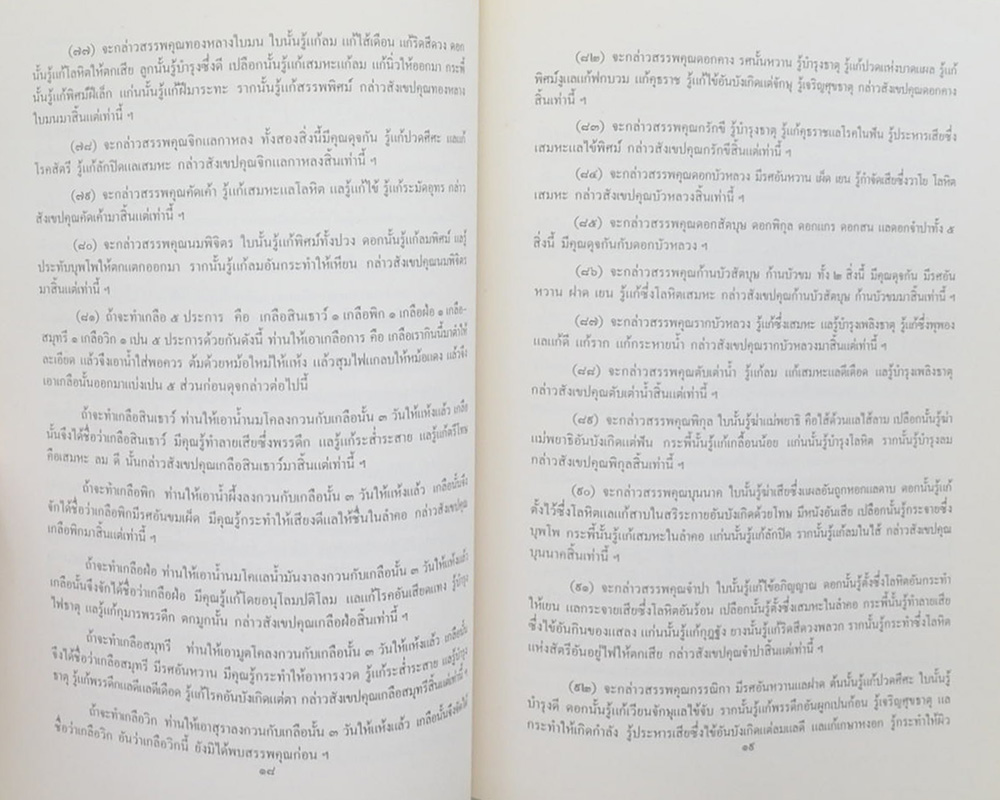 (๗๗) จะกล่าวสรรพคุณทองหลางใบมน ใบนั้นรู้แก้ลม แก้ไส้เดือน แก้ริดสีดวง ดอก
นั้นรู้แก้โลหิตให้ตกเสีย ลูกนั้นรู้บำรุงซึ่งดี เปลือกนั้นรู้แก้เสมหะแก้ลม แก้นิ่วให้ออกมา กระพี้
นั้นรู้แก้พิศม์ฝีเล็ก แก่นนั้นรู้แก้ฝีมาระทะ รากนั้นรู้แก้สรรพพิศม์ กล่าวสังเขปคุณทองหลาง
ใบมนมาสิ้นแต่เท่านี้ ฯ
(๗๘) จะกล่าวสรรพคุณจิกแลกาหลง ทั้งสองสิ่งนี้มีคุณดุจกัน รู้แก้ปวดศีศะ แลแก้
โรคสัตรี รู้แก้ลักปิดแลเสมหะ กล่าวสังเขปคุณจิกแลกาหลงสิ้นเท่านี้ ฯ
(๗๙) จะกล่าวสรรพคุณคัดเค้า รู้แก้เสมหะแลโลหิต แลรู้แก้ไข้ รู้แก้ระมัดอุทร กล่าว
สังเขปคุณคัดเค้ามาสิ้นแต่เท่านี้ ฯ
(๘๐) จะกล่าวสรรพคุณนมพิจิตร ใบนั้นรู้แก้พิศม์ทั้งปวง ดอกนั้นรู้แก้ลมพิศม์ แลรู้
ประทับบุพโพให้ตกแตกออกมา รากนั้นรู้แก้ลมอันกระทำให้เหียน กล่าวสังเขปคุณนมพิจิตร
มาสิ้นแต่เท่านี้ ฯ
(๘๑) ถ้าจะทำเกลือ ๕ ประการ คือ เกลือสินเธาว์ ๑ เกลือพิก ๑ เกลือฝ่อ ๑ เกลือ-
สมุทรี ๑ เกลือวิก ๑ เปน ๕ ประการด้วยกันดังนี้ ท่านให้เอาเกลือการ คือ เกลือเรากินนี้มาตำให้
ละเอียด แล้วจึงเอาน้ำใส่พอควร ต้มด้วยหม้อใหม่ให้แห้ง แล้วสุมไฟแกลบให้หม้อแดง แล้วจึง
เอาเกลือนั้นออกมาแบ่งเปน ๕ ส่วนก่อนดุจกล่าวต่อไปนี้
ถ้าจะทำเกลือสินเธาว์ ท่านให้เอาน้ำนมโคลงกวนกับเกลือนั้น ๓ วันให้แห้งแล้ว เกลือ
นั้นจึงได้ชื่อว่าเกลือสินเธาว์ มีคุณรู้ทำลายเสียซึ่งพรรดึก แลรู้แก้ระส่ำระสาย แลรู้แก้ตรีโทษ
คือเสมหะ ลม ดี นั้นกล่าวสังเขปคุณเกลือสินเธาว์มาสิ้นแต่เท่านี้ ฯ
ถ้าจะทำเกลือพิก ท่านให้เอาน้ำผึ้งลงกวนกับเกลือนั้น ๓ วันให้แห้งแล้ว เกลือนั้นจึง
จักได้ชื่อว่าเกลือพิกมีรศอันขมเผ็ด มีคุณรู้กระทำให้เสียงดีแลให้ชื่นในลำคอ กล่าวสังเขปคุณ
เกลือพิกมาสิ้นแต่เท่านี้ ฯ
ถ้าจะทำเกลือฝ่อ ท่านให้เอาน้ำนมโคแลน้ำมันงาลงกวนกับเกลือนั้น ๓ วันให้แห้งแล้ว
เกลือนั้นจึงจักได้ชื่อว่าเกลือฝ่อ มีคุณรู้แก้โดยอนุโลมปติโลม แลแก้โรคอันเสียดแทง รู้บำรุง
ไฟธาตุ แลรู้แก้กุมารพรรดึก ตกมูกนั้น กล่าวสังเขปคุณเกลือฝ่อสิ้นเท่านี้ ฯ
ถ้าจะทำเกลือสมุทรี ท่านให้เอามูตโคลงกวนกับเกลือนั้น ๓ วันให้แห้งแล้ว เกลือนั้น
จึงได้ชื่อว่าเกลือสมุทรี มีรศอันหวาน มีคุณรู้กระทำให้อาหารงวด รู้แก้ระส่ำระสาย แลรู้บำรุง
ธาตุ รู้แก้พรรดึกแลดีแลดีเดือด รู้แก้โรคอันบังเกิดแต่ตา กล่าวสังเขปคุณเกลือสมุทรีสิ้นแต่เท่านี้ ฯ
ถ้าจะทำเกลือวิก ท่านให้เอาสุราลงกวนกับเกลือนั้น ๓ วันให้แห้งแล้ว เกลือนั้นจึงจัดได้
ชื่อว่าเกลือวิก อันว่าเกลือวิกนี้ ยังมิได้พบสรรพคุณก่อน ฯ
๑๘
(๘๒) จะกล่าวสรรพคุณดอกคาง รศนั้นหวาน รู้บำรุงธาตุ รู้แก้ปวดแห่งบาดแผล รู้แก้
พิศม์งูแลแก้ฟกบวม แก้คุธราช รู้แก้ไข้อันบังเกิดแต่จักษุ รู้เจริญศุขธาตุ กล่าวสังเขปคุณดอกคาง
สิ้นแต่เท่านี้ ฯ
(๘๓) จะกล่าวสรรพคุณกรักขี รู้บำรุงธาตุ รู้แก้คุธราชแลโรคในฟัน รู้ประหารเสียซึ่ง
เสมหะแลไข้พิศม์ กล่าวสังเขปคุณกรักขีสิ้นแต่เท่านี้ ฯ
(๘๔) จะกล่าวสรรพคุณดอกบัวหลวง มีรศอันหวาน เผ็ด เยน รู้กำจัดเสียซึ่งวาโย โลหิต
เสมหะ กล่าวสังเขปคุณบัวหลวงสิ้นแต่เท่านี้ ฯ
(๘๕) จะกล่าวสรรพคุณดอกสัตบุษ ดอกพิกุล ดอกแกร ดอกสน แลดอกจำปาทั้ง ๕
สิ่งนี้ มีคุณดุจกันกับดอกบัวหลวง ฯ
(๘๖) จะกล่าวสรรพคุณก้านบัวสัตบุษ ก้านบัวขม ทั้ง ๒ สิ่งนี้ มีคุณดุจกัน มีรศอัน
หวาน ฝาด เยน รู้แก้ซึ่งโลหิตเสมหะ กล่าวสังเขปคุณก้านบัวสัตบุษ ก้านบัวขมมาสิ้นเท่านี้ ฯ
(๘๗) จะกล่าวสรรพคุณรากบัวหลวง รู้แก้ซึ่งเสมหะ แลรู้บำรุงเพลิงธาตุ รู้แก้ซึ่งพุพอง
แลแก้ดี แก้ราก แก้กระหายน้ำ กล่าวสังเขปคุณรากบัวหลวงมาสิ้นแต่เท่านี้ ฯ
(๘๘) จะกล่าวสรรพคุณตับเต่าน้ำ รู้แก้ลม แก้เสมหะแลดีเดือด แลรู้บำรุงเพลิงธาตุ
กล่าวสังเขปคุณตับเต่าน้ำสิ้นแต่เท่านี้ ฯ
(๘๙) จะกล่าวสรรพคุณพิกุล ใบนั้นรู้ฆ่าแม่พยาธิ คือไส้ด้วนแลไส้ลาม เปลือกนั้นรู้ฆ่า
แม่พยาธิอันบังเกิดแต่ฟัน กระพี้นั้นรู้แก้เกลื้อนน้อย แก่นนั้นรู้บำรุงโลหิต รากนั้นรู้บำรุงลม
กล่าวสังเขปคุณพิกุลสิ้นเท่านี้ ฯ
(๙๐) จะกล่าวสรรพคุณบุนนาค ใบนั้นรู้ฆ่าเสียซึ่งแผลอันถูกหอกแลดาบ ดอกนั้นรู้แก้
ตั้งไว้ซึ่งโลหิตแลแก้สาบในสริระกายอันบังเกิดด้วยโทษ มีหนังอันเสีย เปลือกนั้นรู้กระจายซึ่ง
บุพโพ กระพี้นั้นรู้แก้เสมหะในลำคอ แก่นนั้นรู้แก้ลักปิด รากนั้นรู้แก้ลมในไส้ กล่าวสังเขปคุณ
บุนนาคสิ้นเท่านี้ ฯ
(๙๑) จะกล่าวสรรพคุณจำปา ใบนั้นรู้แก้ไข้อภิญญาณ ดอกนั้นรู้ตั้งซึ่งโลหิตอันกระทำ
ให้เยน แลกระจายเสียซึ่งโลหิตอันร้อน เปลือกนั้นรู้ตั้งซึ่งเสมหะในลำคอ กระพี้นั้นรู้ทำลายเสีย
ซึ่งไข้อันกินของแสลง แก่นนั้นรู้แก้กุฏฐัง ยางนั้นรู้แก้ริดสีดวงพลวก รากนั้นรู้กระทำซึ่งโลหิต
แห่งสัตรีอันอยู่ไฟให้ตกเสีย กล่าวสังเขปคุณจำปาสิ้นแต่เท่านี้ ฯ
(๙๒) จะกล่าวสรรพคุณกรรณิกา มีรศอันหวานแลฝาด ต้นนั้นรู้แก้ปวดศีศะ ใบนั้นรู้
บำรุงดี ดอกนั้นรู้แก้เวียนจักษุแลไข้จับ รากนั้นรู้แก้พรรดึกอันผูกเปนก่อน รู้เจริญศุขธาตุ แล
กระทำให้เกิดกำลัง รู้ประหารเสียซึ่งไข้อันบังเกิดแต่ลมแลดี แลแก้เกษาหงอก รู้กระทำให้ผิว
๑๙